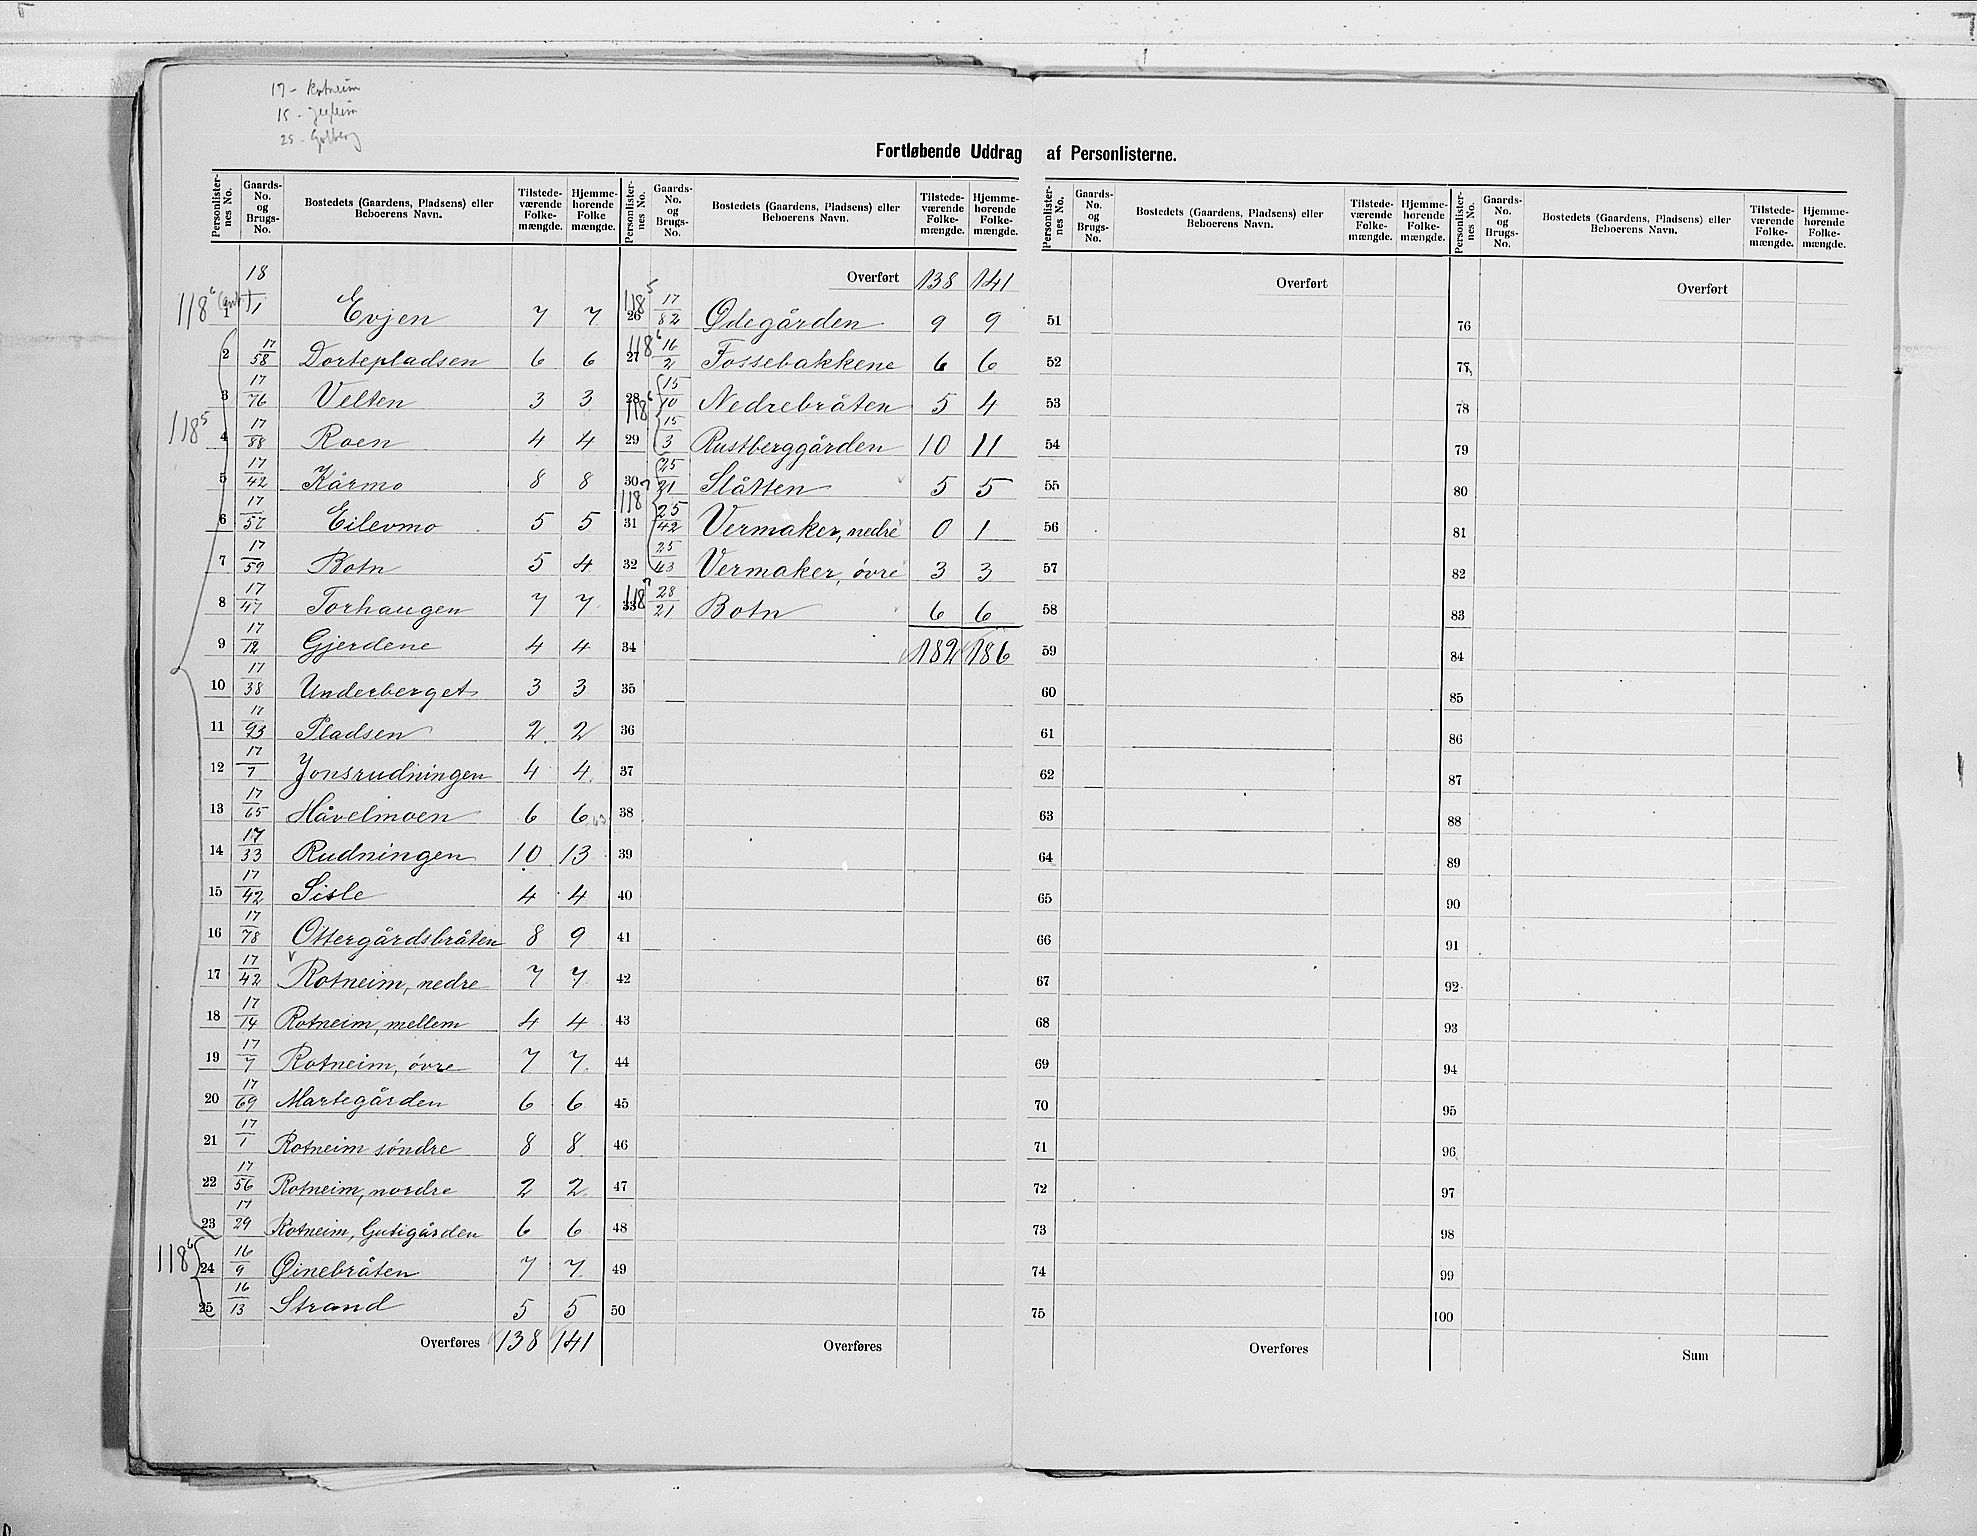 17 - Rotneim
15 - Jegleim
25 - Golberg
Fortløbende Uddrag af Personlisterne.
Personlisternes No. Gaards-No. og Brugs-No. Bostedets (Gaardens, Pladsens) eller Beboerens Navn. Tilstedeværende Folkemængde. Hjemmehørende Folkemængde.
118⁶ 1 18/1 Evjen 7 7
2 17/58 Dortepladsen 6 6
3 17/76 Velten 3 3
118⁵ 4 17/88 Roen 4 4
5 17/42 Kårmo 8 8
6 17/57 Eilevmo 5 5
7 17/59 Botn 5 4
8 17/47 Torhaugen 7 7
9 17/12 Gjerdene 4 4
10 17/38 Underberget 3 3
11 17/93 Pladsen 2 2
12 17/7 Jonsrudningen 4 4
13 17/65 Håvelmoen 6 6
14 17/33 Rudningen 10 13
15 17/42 Sisle 4 4
16 17/78 Ottergårdsbråten 8 9
17 17/42 Rotneim, nedre 7 7
18 17/14 Rotneim, mellem 4 4
19 17/7 Rotneim, övre 7 7
20 17/69 Martegården 6 6
21 17/1 Rotneim söndre 8 8
22 17/56 Rotneim, nordre 2 2
23 17/29 Rotneim, Gutigården 6 6
118⁶ 24 16/9 Øinebråten 7 7
25 16/13 Strand 5 5
Overføres 138 141
Personlisternes No. Gaards-No. og Brugs-No. Bostedets (Gaardens, Pladsens) eller Beboerens Navn. Tilstedeværende Folkemængde. Hjemmehørende Folkemængde.
Overført 138 141
118⁵ 26 17/82 Ødegården 9 9
118⁶ 27 16/2 Fossebakkene 6 6
118⁶ 28 15/10 Nedrebråten 5 4
29 15/3 Rustberggården 10 11
30 25/21 Slåtten 5 5
118⁷ 31 25/42 Vermaker, nedre 0 1
32 25/43 Vermaker, övre 3 3
118⁷ 33 28/21 Botn 6 6
34 182 186
35
36
37
38
39
40
41
42
43
44
45
46
47
48
49
50
Overføres
Personlisternes No. Gaards-No. og Brugs-No. Bostedets (Gaardens, Pladsens) eller Beboerens Navn. Tilstedeværende Folkemængde. Hjemmehørende Folkemængde.
Overført
51
52
53
54
55
56
57
58
59
60
61
62
63
64
65
66
67
68
69
70
71
72
73
74
75
Overføres
Personlisternes No. Gaards-No. og Brugs-No. Bostedets (Gaardens, Pladsens) eller Beboerens Navn. Tilstedeværende Folkemængde. Hjemmehørende Folkemængde.
Overført
76
77
78
79
80
81
82
83
84
85
86
87
88
89
90
91
92
93
94
95
96
97
98
99
100
Sum